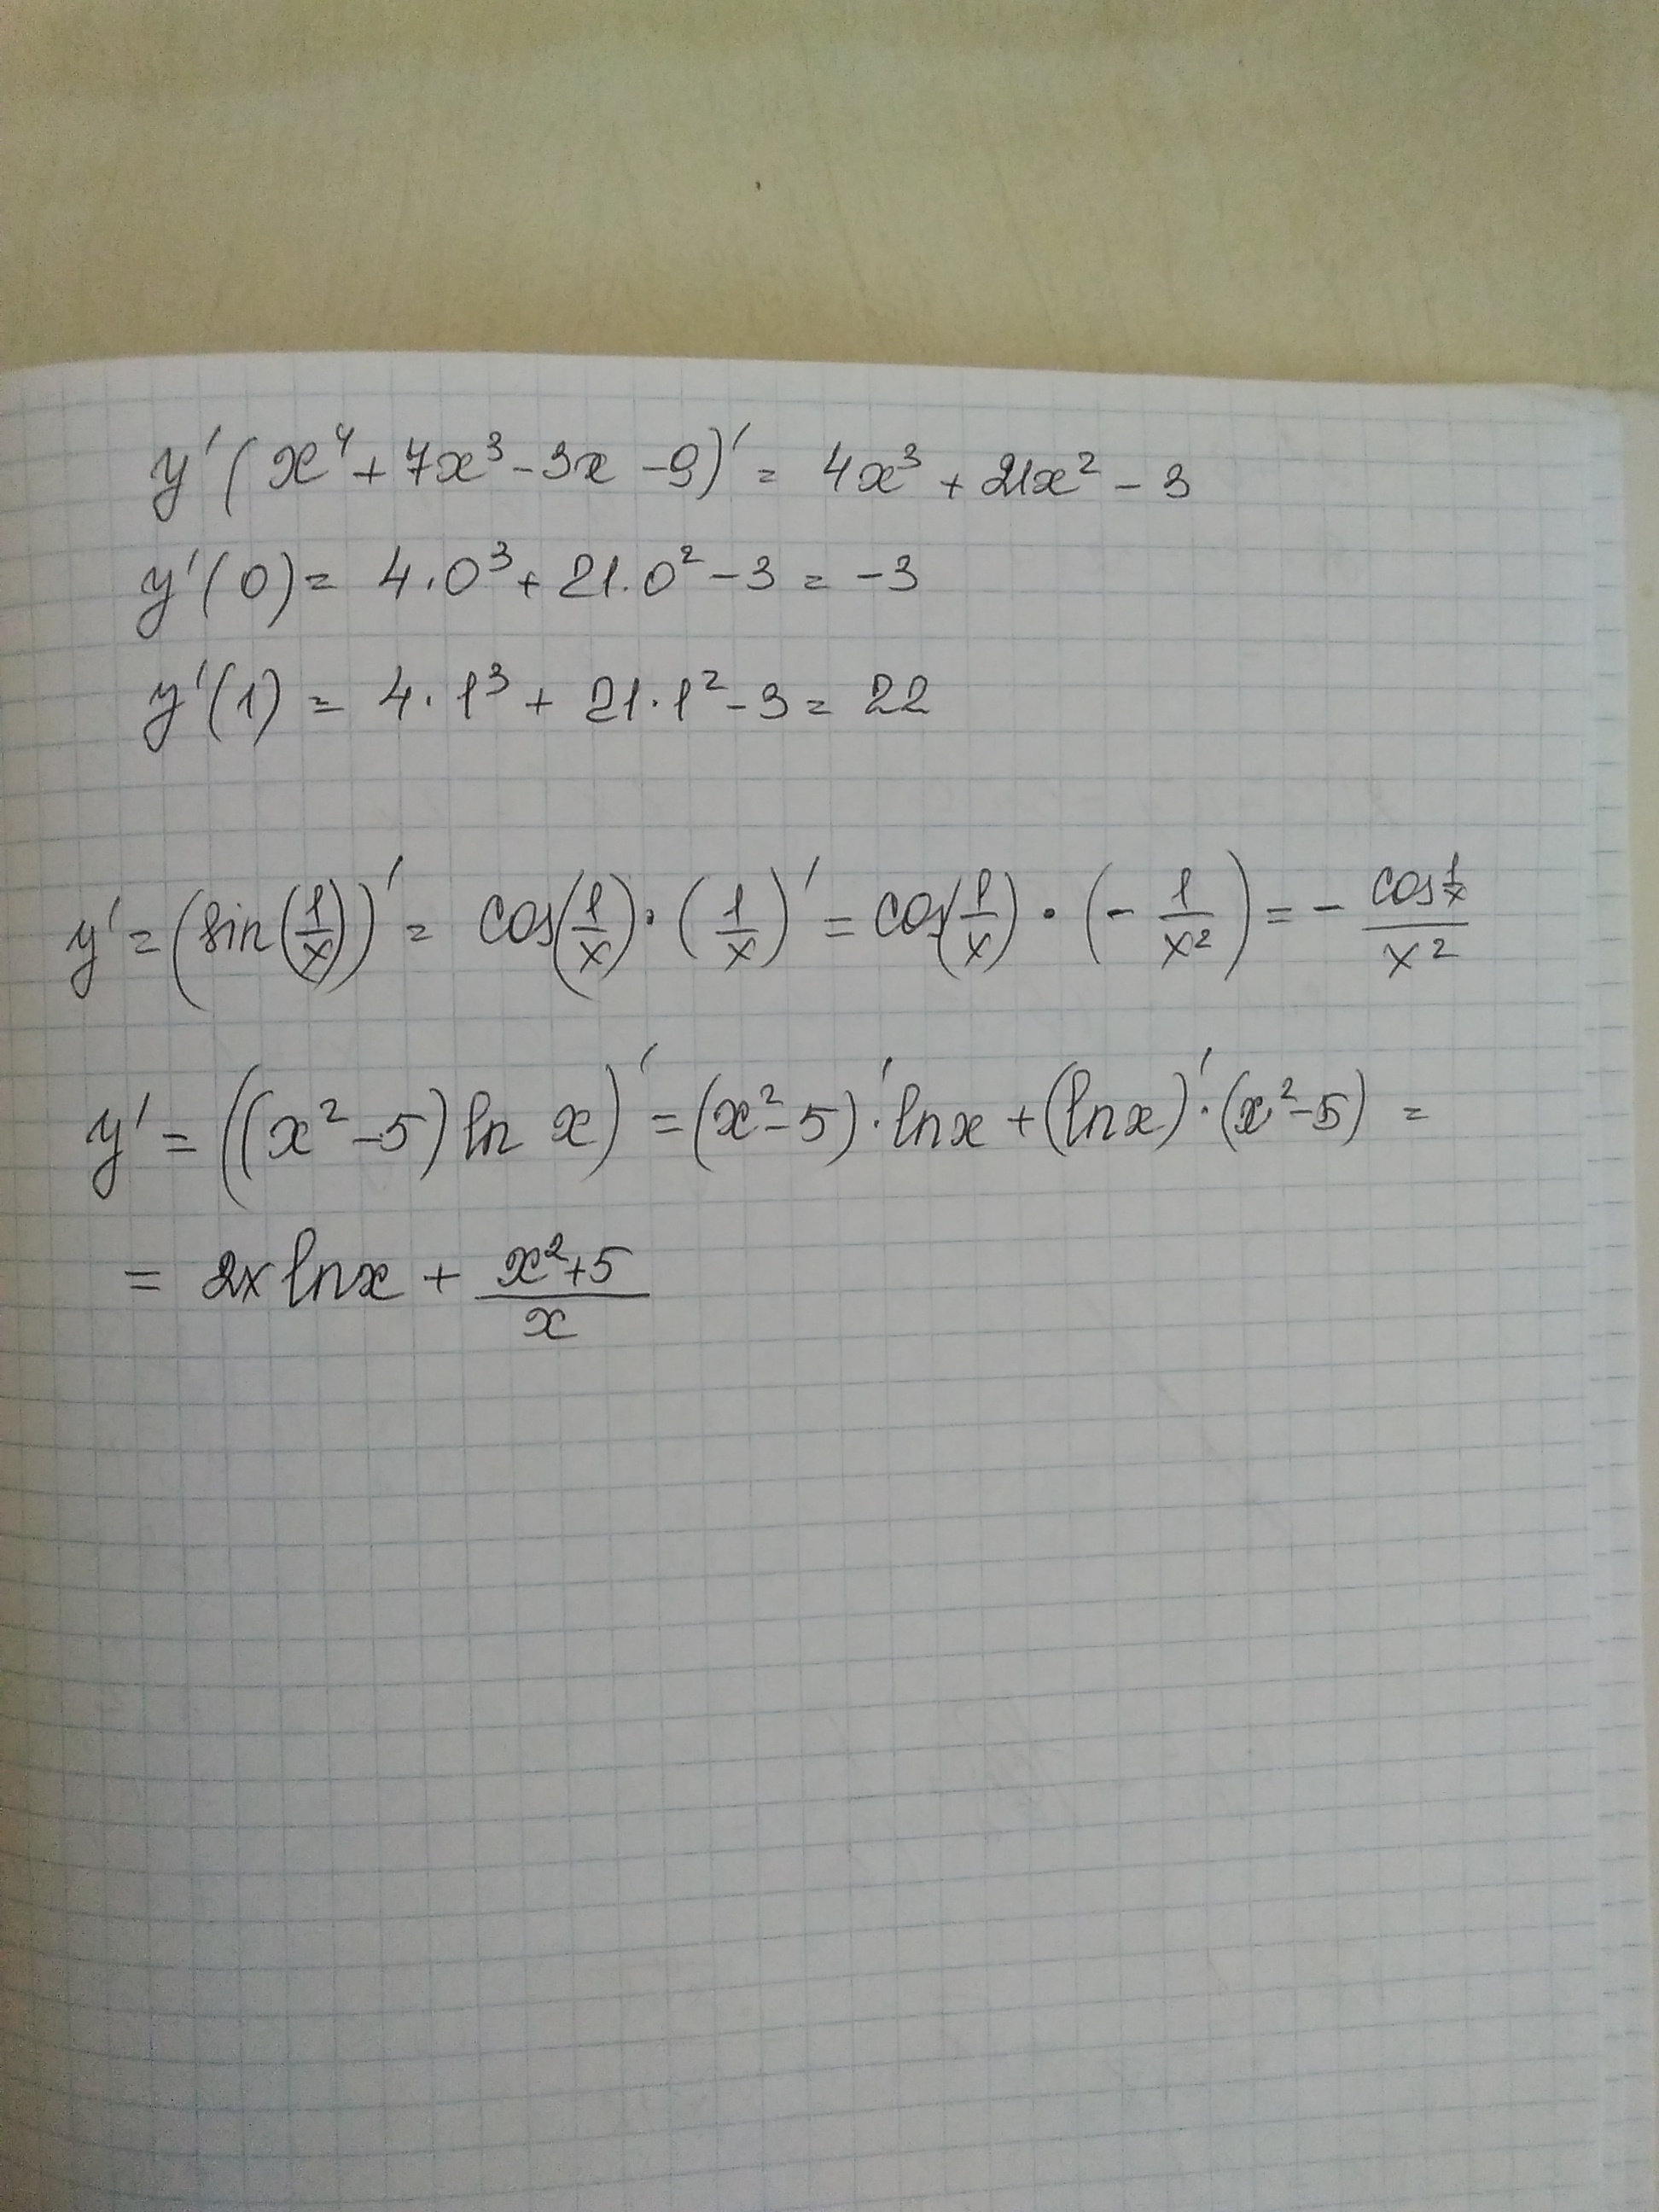 y'(x⁴+7x³-3x-9)' = 4x³+21x²-3
y'(0) = 4·0³+21·0²-3 = -3
y'(1) = 4·1³+21·1²-3 = 22
y' = (sin(1/x))' = cos(1/x)·(1/x)' = cos(1/x)·(-1/x²) = -cos 1/x / x²
y' = ((x²-5) ln x)' = (x²-5)'·ln x+(ln x)'·(x²-5) =
= 2x ln x + x²+5 / x